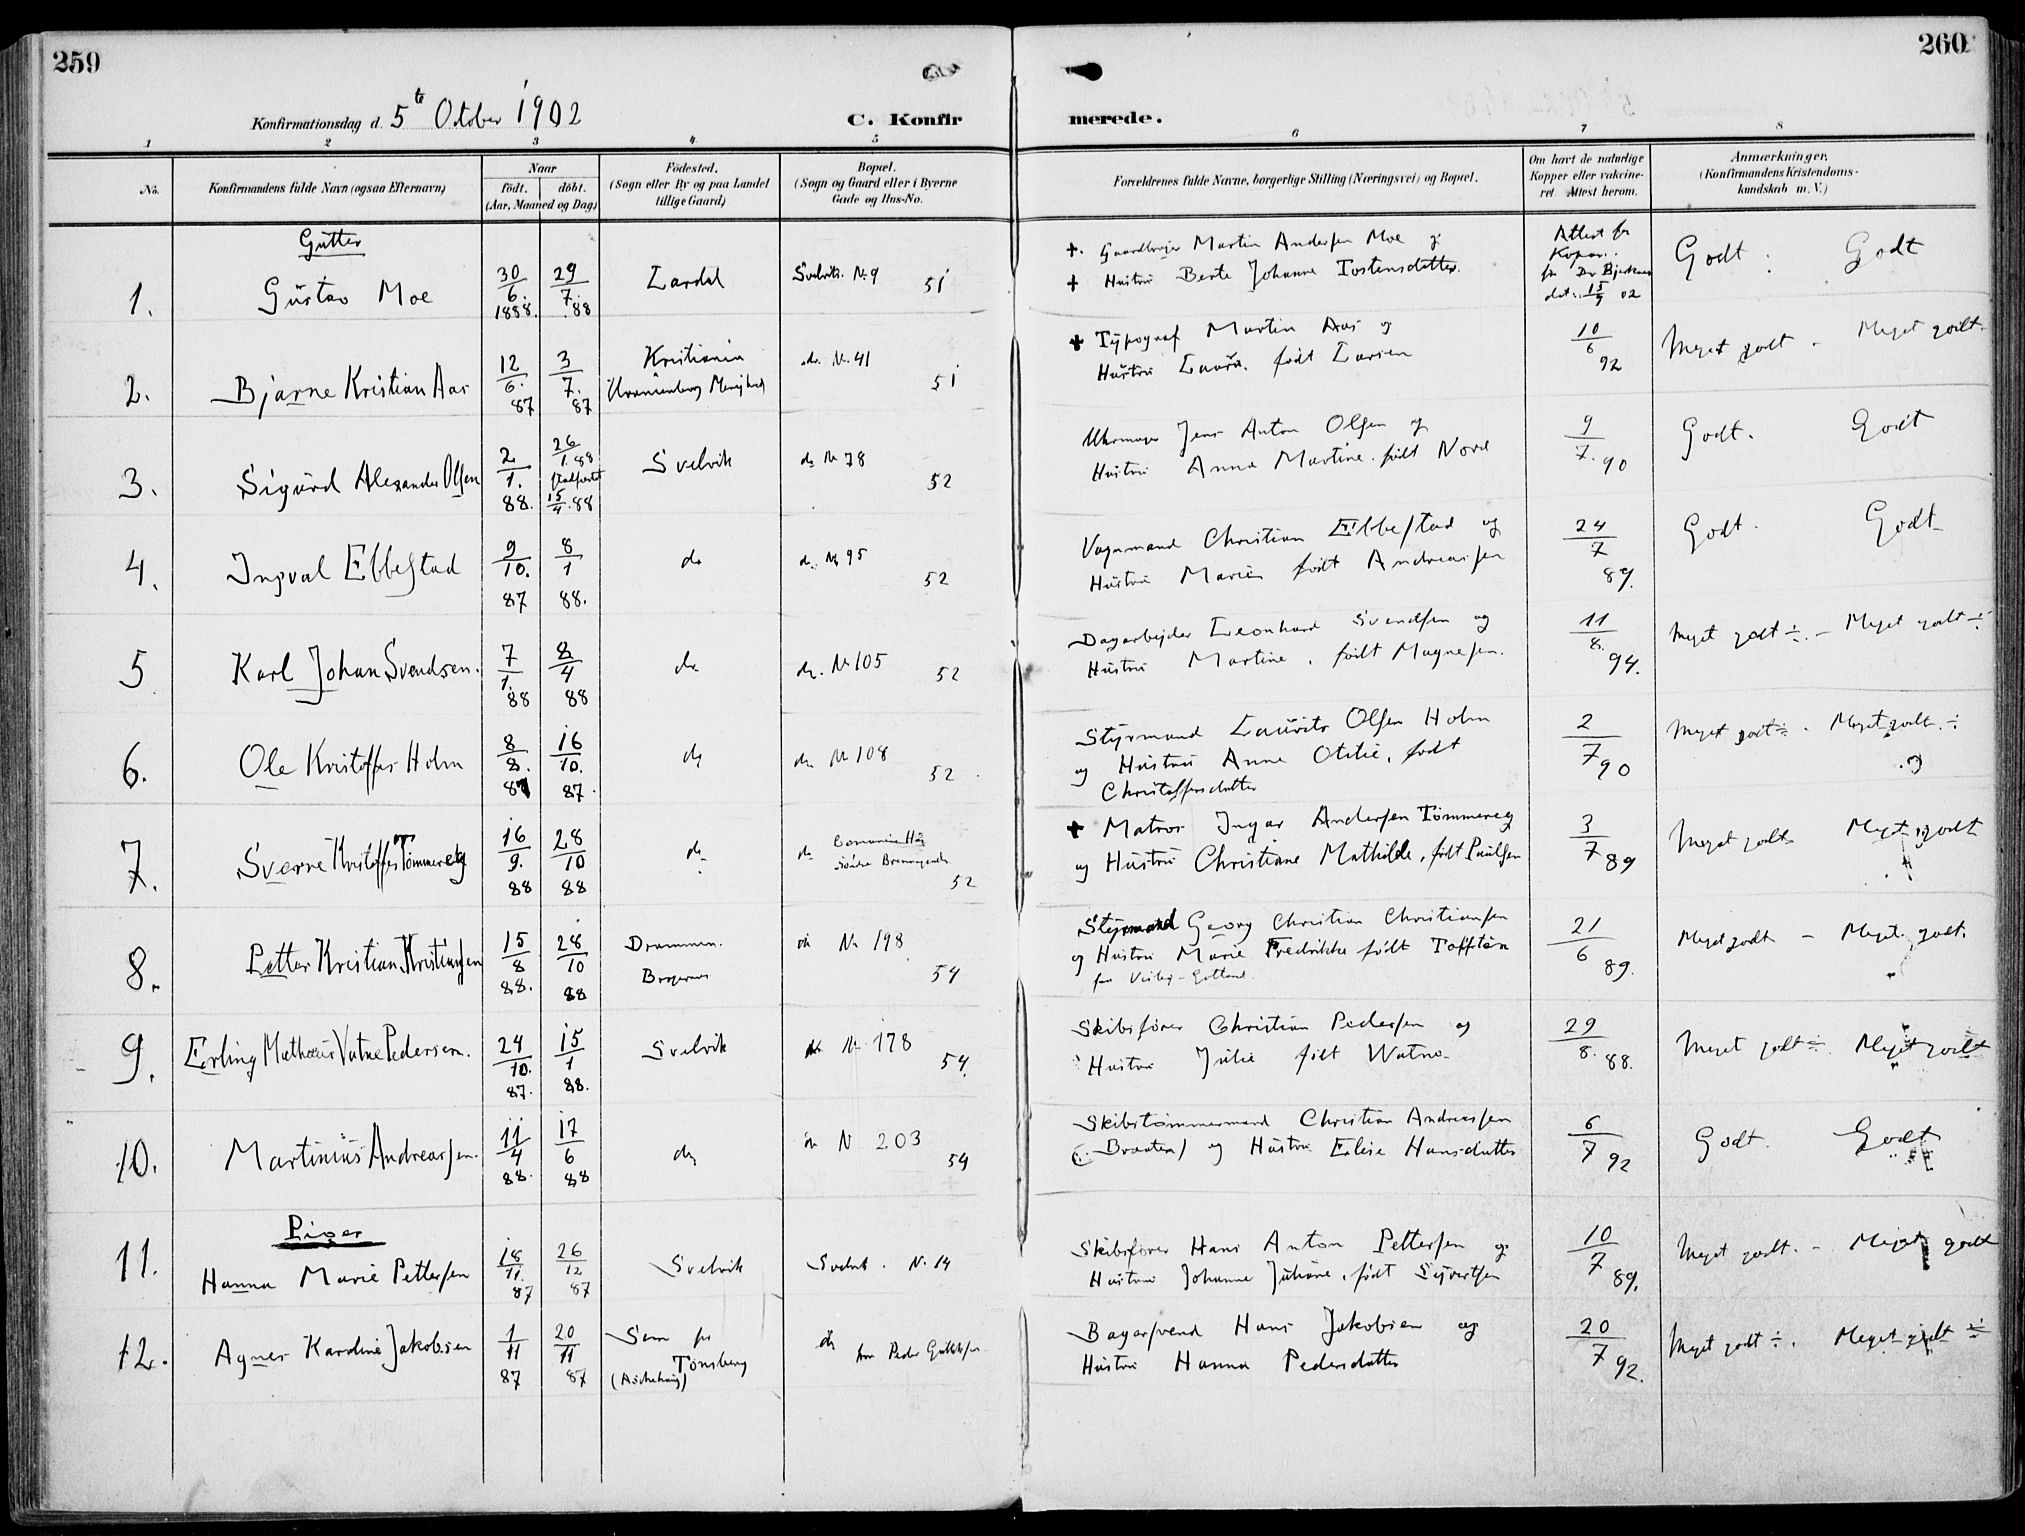 259
260
Konfirmationsdag d. 5te October 1902
C. Konfirmerede.
1 2 3 4 5 6 7 8
No.
Konfirmandens fulde Navn (ogsaa Efternavn)
Naar
födt. döbt.
(Aar, Maaned og Dag)
Födested.
(Sogn eller By og paa Landet
tillige Gaard)
Bopæl.
(Sogn og Gaard eller i Byerne
Gade og Hus-No.
Forældrenes fulde Navne, borgerlige Stilling (Næringsvei) og Bopæl.
Om havt de naturlige
Kopper eller vakcine-
ret Attest herom.
Anmærkninger.
(Konfirmandens Kristendoms-
kundskab m. V.)
Gutter
1. Gustav Moe 30/6. 1888. 29/7. 88 Lardal Svelvik. No 9 51
+ Gaardbruger Martin Andersen Moe og
+ Hustru Berte Johanne Tostensdatter.
Attest fr
Kopar.
fr Dr
dat. 15/9 02
Godt Godt
2. Bjarne Kristian Aas 12/6. 87 3/7. 87 Kristiania
Uranienborg Menighed do. No. 41 51
+ Typograf Martin Aas og
Hustru Laura. født Larsen
10/6 92 Meget godt - Meget godt.
3. Sigurd Alexander Olsen 2/1. 88. 26/1. 88
15/4. 88 Svelvik do No 78 52
Uhrmager Jens Anton Olsen og
Hustru Anna Martine. født Nord
9/7. 90 Godt. Godt
4. Ingval Ebbestad 9/10. 87 8/1 88. do do. No 95 52
Vognmand Christian Ebbestad og
Hustru Marie født Andreassen
24/7 89. Godt. Godt
5 Karl Johan Svendsen. 7/1. 88 8/4 88 do do. No 105 52
Dagarbejder Leonhard Svendsen og
Hustru Martine, født Magnesen.
11/8. 94. Meget godt ÷. - Meget godt ÷
6. Ole Kristoffer Holm 8/8. 87 16/10. 87. do do No 108 52
Styrmand Laurits Olsen Holm
og Hustru Anne Otilie, født
Christoffersdatter
2/7 90 Meget godt ÷. Meget godt. ÷
7. Sverre Kristoffer Tømmereg 16/9. 88 28/10 88 do do
52
+ Matros Ingar Andersen Tømmereg
og Hustru Christiane Mathilde, født Paulsen
3/7 89 Meget godt Meget godt
8. Petter Kristian Kristiansen 15/8 88. 28/10 88 Drammen.
Bragernes do No 198 54
Styrmand Georg Christian Christiansen
og Hustru Marie Fredrikke født Tofften
21/6 89. Meget godt - Meget godt.
9. Erling Mathæus Vatne Pedersen. 24/10. 87. 15/1 88. Svelvik do No 178 54.
Skibsfører Christian Pedersen og
Hustru Julie født Watne
29/8. 88. Meget godt ÷. Meget godt
10. Martinius Andreassen. 11/4 88. 17/6 88 do do N 203 54
Skibstømmermand Christian Andreassen
(Braaten) og Hustru Elise Hansdatter
6/7 92 Godt. Godt
Piger
11. Hanna Marie Pettersen 18/11. 87 26/12 87 Svelvik Svelvik. No. 14
Skibsfører Hans Anton Pettersen og
Hustru Johanne Juliane, født Syvertsen
10/7 89. Meget godt. - Meget godt
12. Agnes Karoline Jakobsen 1/11 87 20/11 87 Sem pr
Tønsberg do
Bagersvend Hans Jakobsen og
Hustru Hanna Pedersdatter
20/7 92. Meget godt ÷. Meget godt ÷